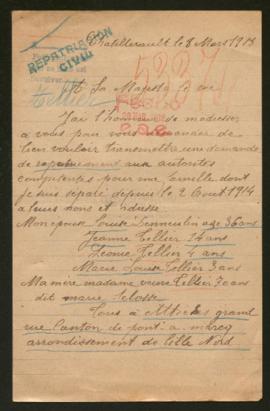 Chatellerault le 8 Mars 1918
REPATRIATION
CIVIL
Tellier
5337
A Sa Majesté le roi
J'ai l'honneur de m'adresser
à vous pour vous demander de
bien vouloir transmettre une demande
de rapatriement aux autorités
compétentes pour ma famille dont
je suis séparé depuis le 2 Aout 1914
a leurs nons et adresse
Mon épouse Louise Denneulin age 36 ans
Jeanne Tellier 14 ans
Leonie Tellier 4 ans
Marie Louise Tellier 3 ans
Ma mère madame veuve Tellier 70 ans
dit marie Delosse
Tous à Attiches grand
rue Canton de pont-a-marcq
arrondissement de Lille Nord